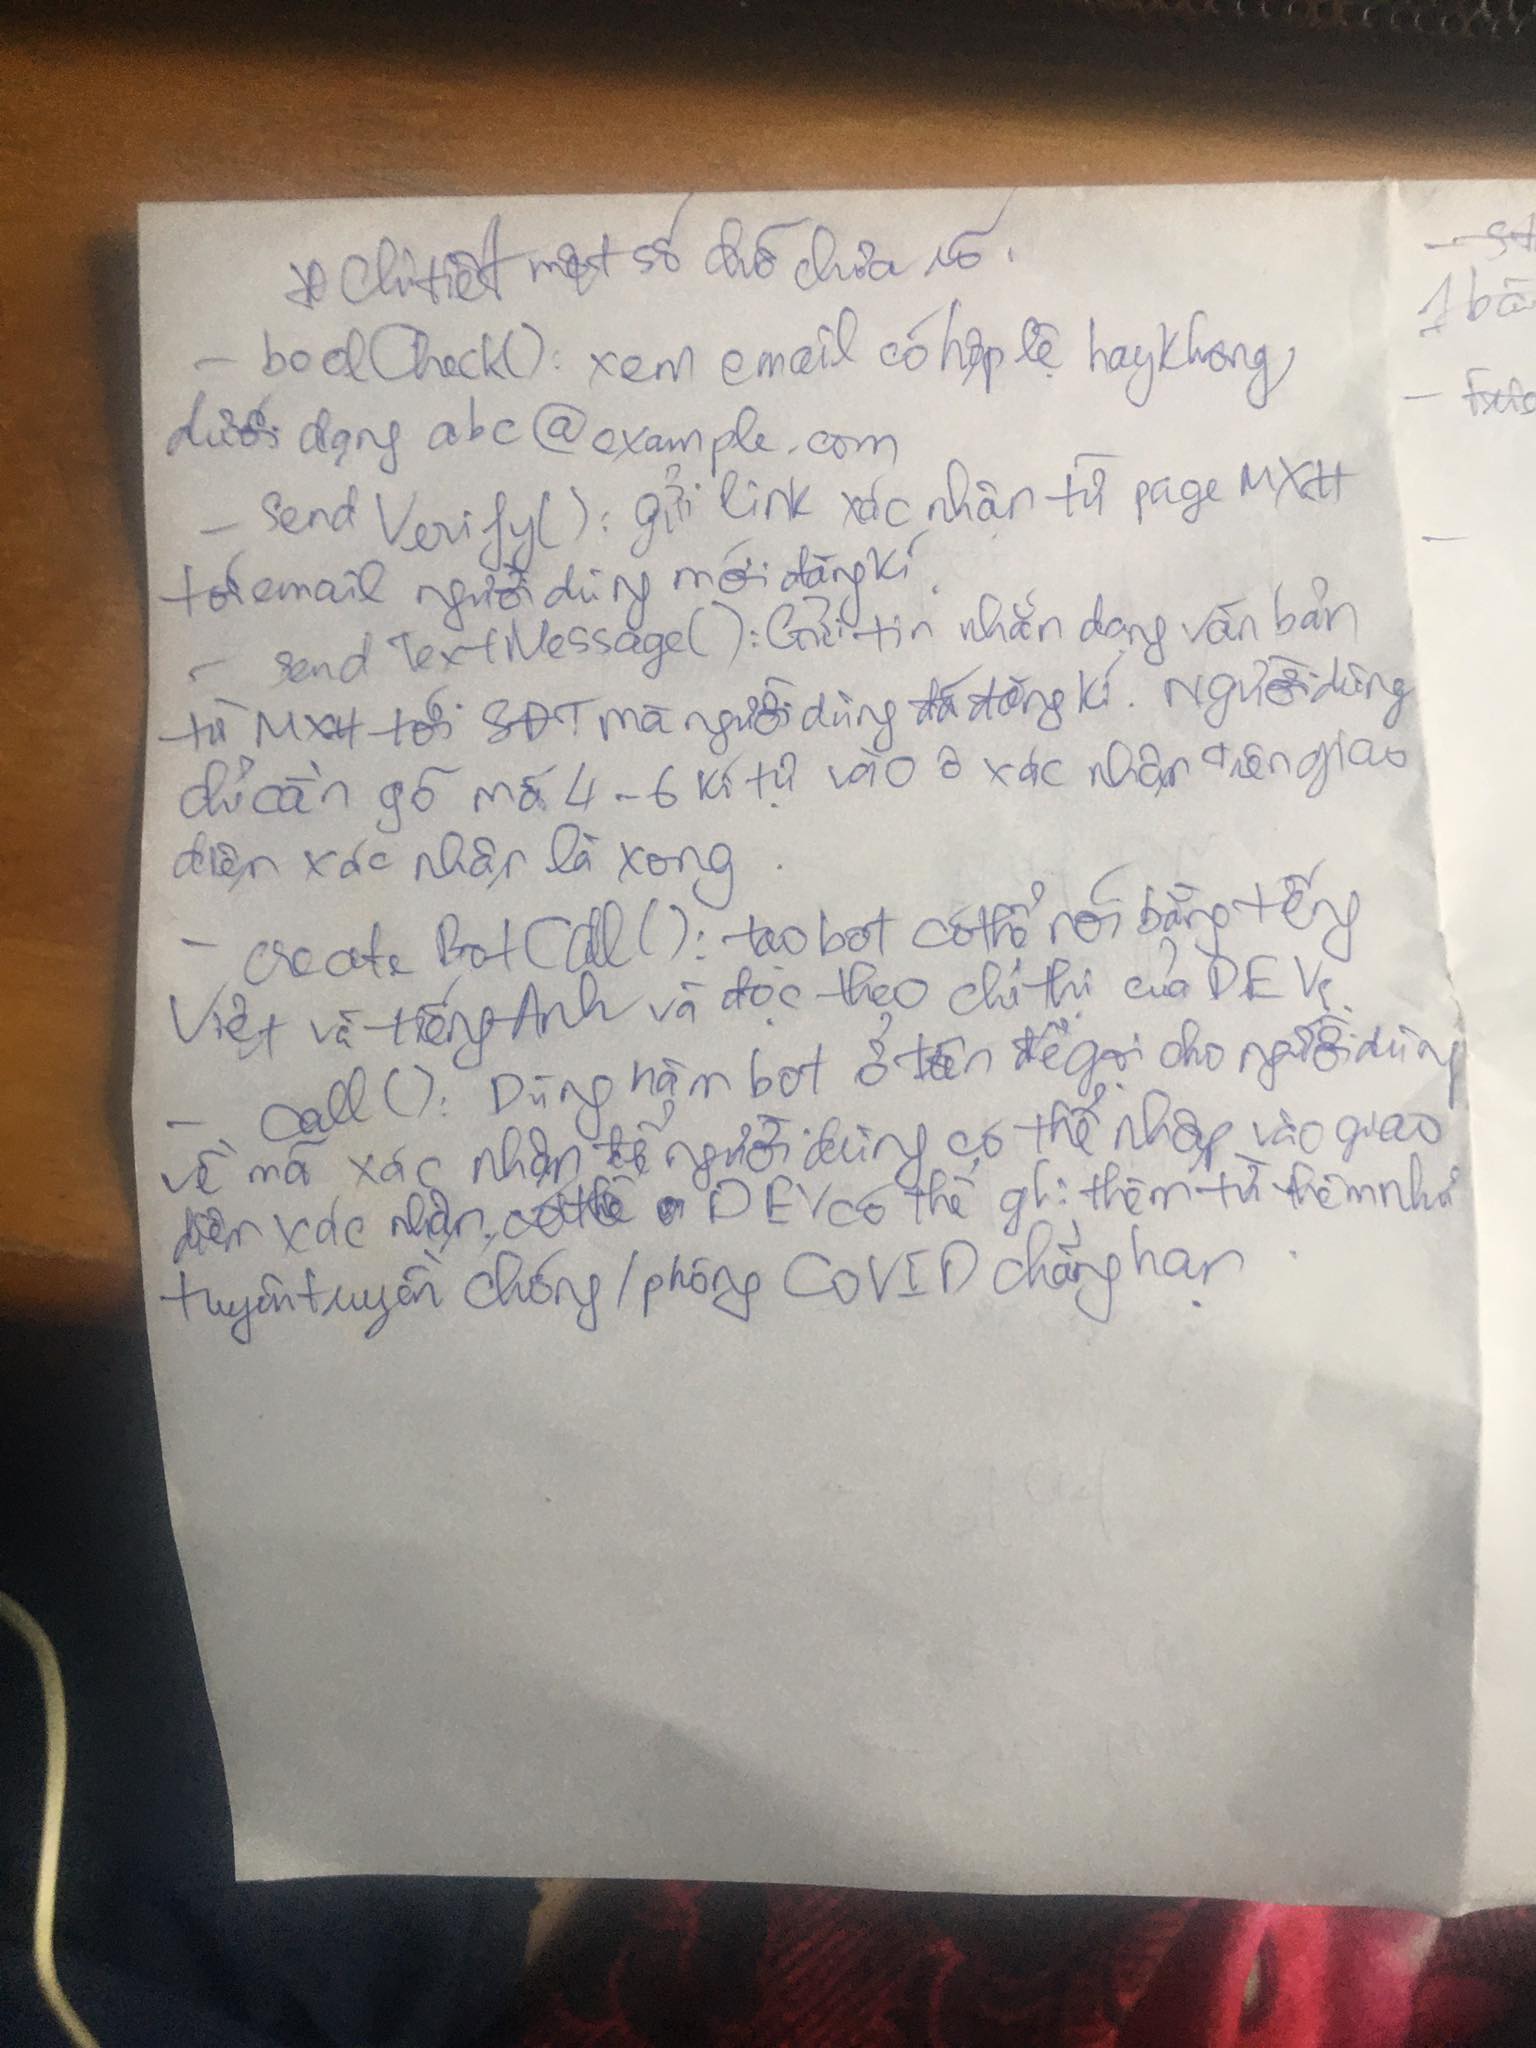 * Chi tiết một số chỗ chưa rõ.
- boolCheck(): xem email có hợp lệ hay không,
dưới dạng abc@example.com
- send Verify(): gửi link xác nhận từ page MXH
tới email người dùng mới đăng kí.
- send TextMessage(): Gửi tin nhắn dạng văn bản
từ MXH tới SĐT mà người dùng đã đăng kí. Người dùng
chỉ cần gõ mã 4-6 kí tự vào ô xác nhận trên giao
diện xác nhận là xong.
- create BotCall(): tạo bot có thể nói bằng tiếng
Việt và tiếng Anh và đọc theo chỉ thị của DEV.
- call(): Dùng hàm bot ở trên để gọi cho người dùng
về mã xác nhận để người dùng có thể nhập vào giao
diện xác nhận. DEV có thể ghi thêm từ thêm như
tuyên truyền chống/phòng COVID chẳng hạn.
1 bà